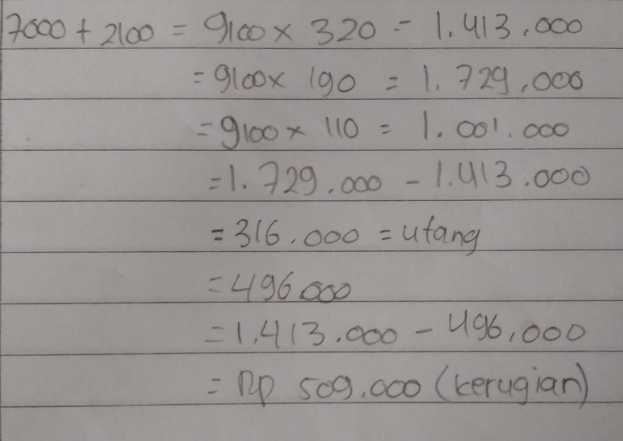 7000 + 2100 = 9100 x 320 = 1.413.000
= 9100 x 190 = 1.729.000
= 9100 x 110 = 1.001.000
= 1.729.000 - 1.413.000
= 316.000 = utang
= 496000
= 1.413.000 - 496.000
= Rp 509.000 (kerugian)